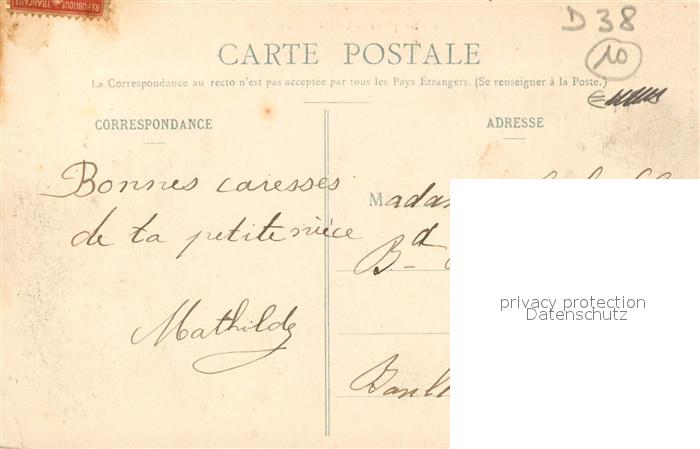 RÉPUBLIQUE FRANÇAISE
D 38
10
CARTE POSTALE
La Correspondance au recto n'est pas acceptée par tous les Pays Étrangers. (Se renseigner à la Poste.)
€
CORRESPONDANCE
ADRESSE
Bonnes caresses
de ta petite nièce
Mathilde
Madam
Bd
privacy protection
Datenschutz